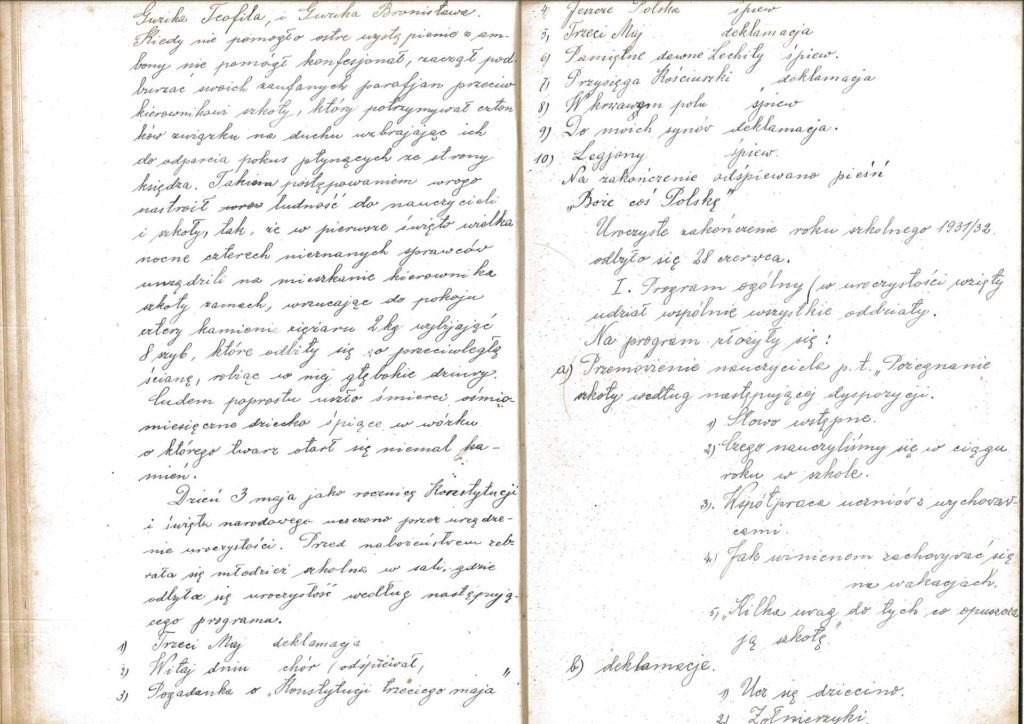 Guzika Teofila, i Guzika Bronisława.
Kiedy nie pomogło ostre wystąpienie z am-
bony nie pomógł konfesjonał, zaczął pod
burzać swoich zaufanych parafjan przeciw
kierownikowi szkoły, który potrzymywał człon
ków związku na duchu uzbrajając ich
do odparcia pokus płynących ze strony
księdza. Takiem postępowaniem wrogo
nastroił ludność do nauczycieli
i szkoły, tak, że w pierwsze święto wielka
nocne czterech nieznanych sprawców
urządzili na mieszkanie kierownika
szkoły zamach, wrzucając do pokoju
cztery kamieni ciężaru 2 kg wybijając
8 szyb, które odbiły się o przeciwległą
ścianę, robiąc w niej głębokie dziury.
Cudem poprostu uszło śmierci ośmio
miesięczne dziecko śpiące w wózku
o którego twarz otarł się niemal ka-
mień.
Dzień 3 maja jako rocznicę Konstytucji
i święta narodowego uczczono przez urządze-
nie uroczystości. Przed nabożeństwem zeb-
rała się młodzież szkolna w sali, gdzie
odbyła się uroczystość według następują-
cego programu.
1) Trzeci Maj deklamacja
2) Witaj dniu chór (odśpiewał,
3) Pogadanka o „Konstytucji trzeciego maja"
4. Jeszcze Polska śpiew
5) Trzeci Maj deklamacja
6) Pamiętne dawne Lechity śpiew.
7) Przysięga Kościuszki deklamacja
8) W krwawym polu śpiew
9) Do moich synów deklamacja.
10) Legjony śpiew.
Na zakończenie odśpiewano pieśń
„Boże coś Polskę"
Uroczyste zakończenie roku szkolnego 1931/32
odbyło się 28 czerwca.
I. Program ogólny (w uroczystości wzięły
udział wspólnie wszystkie oddziały.
Na program złożyły się:
a) Przemówienie nauczyciela p.t. „Pożegnanie
szkoły według następującej dyspozycji.
1) Słowo wstępne.
2) Czego nauczyliśmy się w ciągu
roku w szkole.
3) Współpraca uczniów z wychowaw-
cami.
4) Jak winienem zachowywać się
na wakacjach.
5) „Kilka uwag do tych co opuszcza
ją szkołę"
b) deklamacje.
1) Ucz się dziecino.
2) Żołnierzyki.